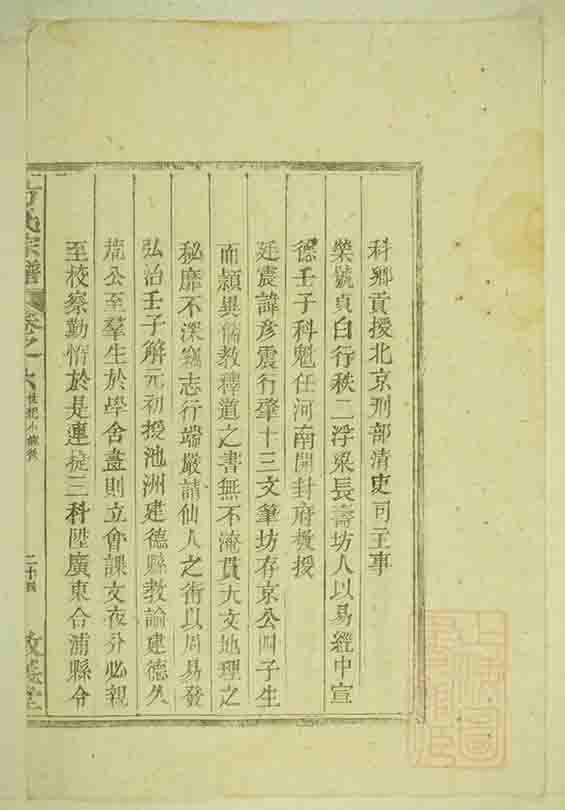 科鄉貢授北京刑部清吏司主事
榮號貞白行秩二浮梁長壽坊人以易經中宣
德壬子科魁任河南開封府教授
廷震諱彥震行肇十三文筆坊存京公四子生
而穎異儒教釋道之書無不淹貫天文地理之
秘靡不深窺志行端嚴請仙人之術以周易發
弘治壬子解元初授池洲建德縣教諭建德久
荒公至羣生於學舍晝則立會課文夜分必親
至校察勤惰於是連掟三科陞廣東合浦縣令
方氏宗譜 卷之六 二十四 敦義堂